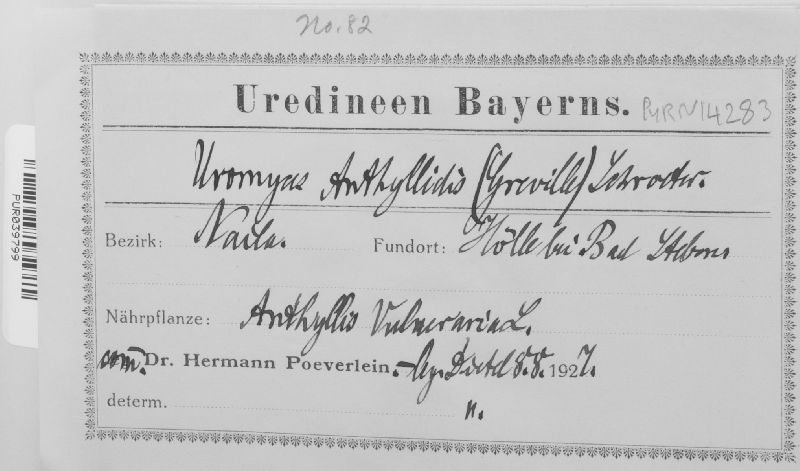 No. 82
Uredineen Bayerns. PURN14283
Uromyces Anthyllidis (Greville) Schroeter.
Bezirk: Naila. Fundort: Hölle bei Bad Steben
Nährpflanze: Anthyllis Vulneraria L.
com. Dr. Hermann Poeverlein. – leg. 8.8. 1927.
determ. n.
PUR039799